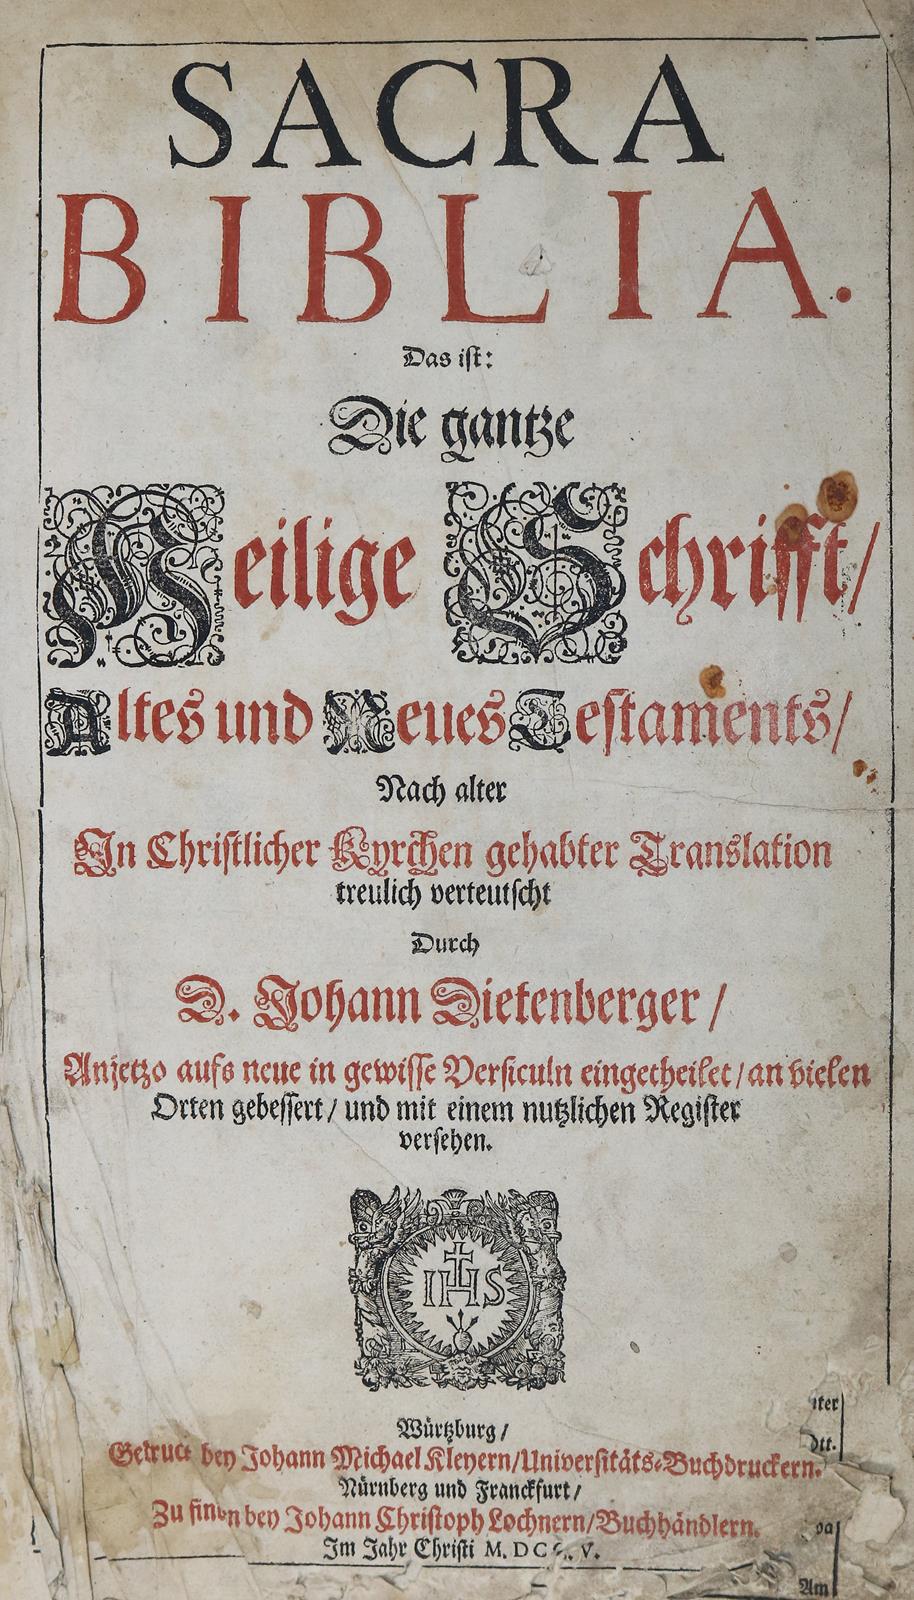 SACRA
BIBLIA.
Das iſt:
Die gantze
Heilige Schrifft/
Altes und Neues Teſtaments/
Nach alter
In Chriſtlicher Kyrchen gehabter Translation
treulich verteutſcht
Durch
D. Johann Dietenberger/
Anjetzo aufs neue in gewiſſe Verſiculn eingetheilet/an vielen
Orten gebeſſert/ und mit einem nutzlichen Regiſter
verſehen.
IHS
Würtzburg/
Gedruct bey Johann Michael Kleyern/Univerſitäts-Buchdruckern.
Nürnberg und Franckfurt/
Zu finden bey Johann Chriſtoph Lochnern/Buchhändlern.
Im Jahr Chriſti M. DC
Am